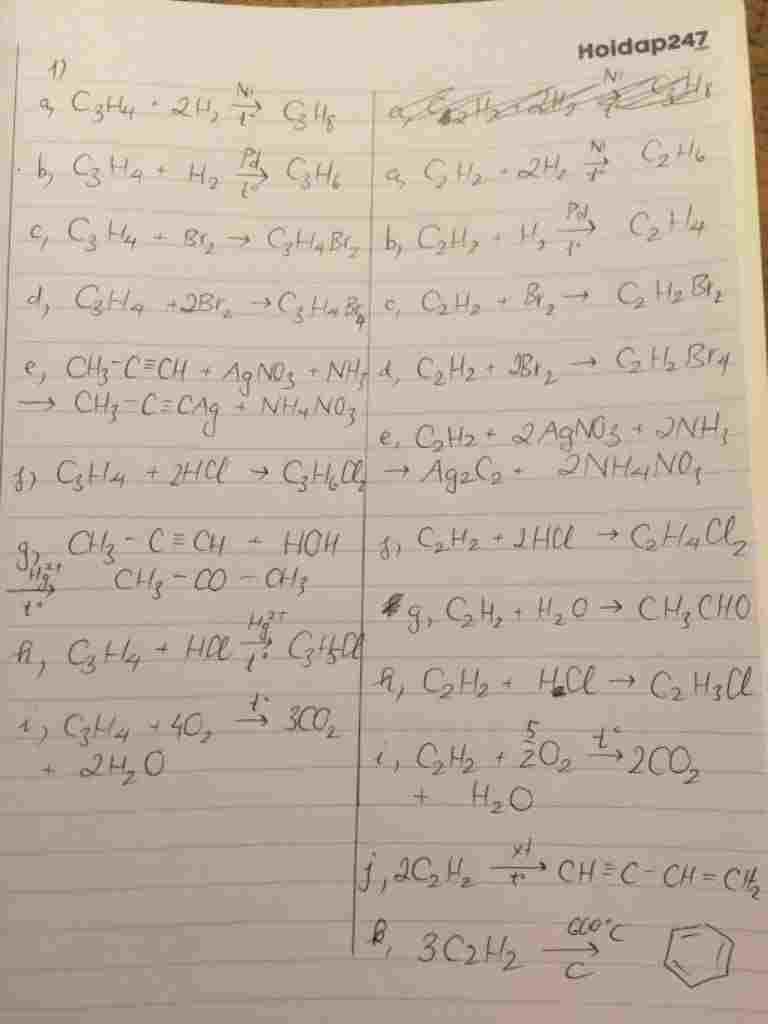 Hoidap247
1)
a, C3H4 + 2H2 Ni→t° C3H8
b, C3H4 + H2 Pd→t° C3H6
c, C3H4 + Br2 → C3H4Br2
d, C3H4 + 2Br2 → C3H4Br4
e, CH3-C≡CH + AgNO3 + NH3
→ CH3-C≡CAg + NH4NO3
f) C3H4 + 2HCl → C3H6Cl2
g, CH3-C≡CH + HOH
Hg2+→t° CH3-CO-CH3
h, C3H4 + HCl Hg2+→t° C3H5Cl
i, C3H4 + 4O2 t°→ 3CO2
+ 2H2O
a, C2H2 + 2H2 Ni→t° C2H6
b, C2H2 + H2 Pd→t° C2H4
c, C2H2 + Br2 → C2H2Br2
d, C2H2 + 2Br2 → C2H2Br4
e, C2H2 + 2AgNO3 + 2NH3
→ Ag2C2 + 2NH4NO3
f, C2H2 + 2HCl → C2H4Cl2
g, C2H2 + H2O → CH3CHO
h, C2H2 + HCl → C2H3Cl
i, C2H2 + 5/2O2 t°→ 2CO2
+ H2O
j, 2C2H2 xt→t° CH≡C-CH=CH2
k, 3C2H2 600°C→C